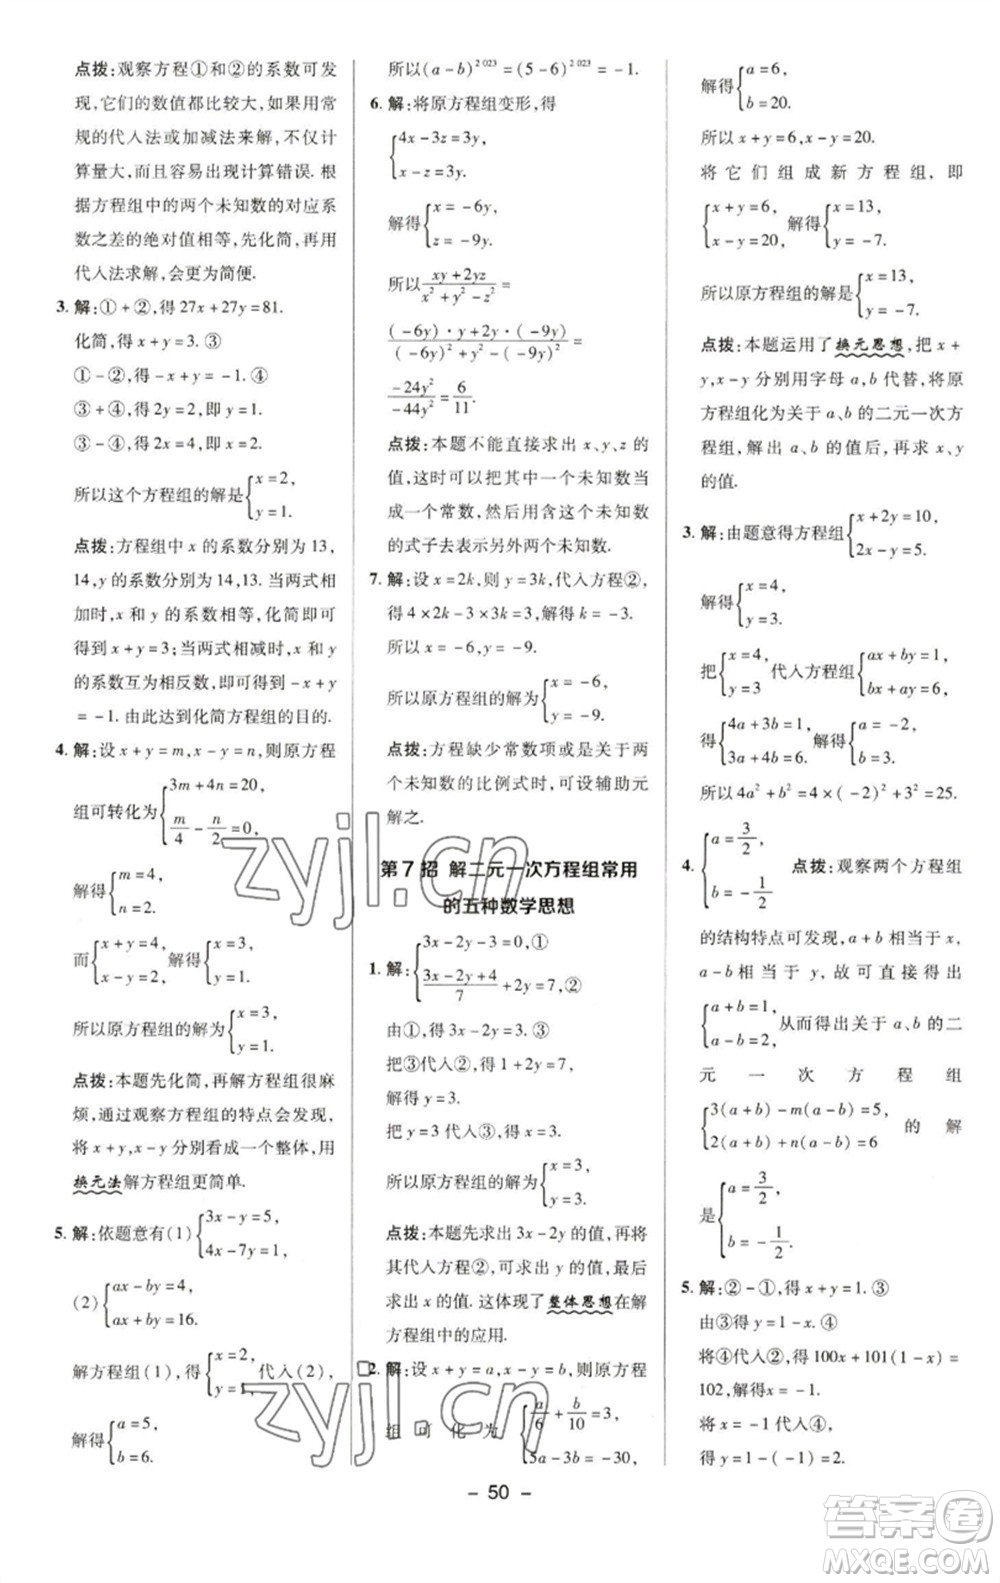 点拨:观察方程①和②的系数可发
现,它们的数值都比较大,如果用常
规的代入法或加减法来解,不仅计
算量大,而且容易出现计算错误. 根
据方程组中的两个未知数的对应系
数之差的绝对值相等,先化简,再用
代入法求解,会更为简便.
3. 解:①+②,得 27x+27y=81.
化简,得 x+y=3. ③
①-②,得 -x+y=-1. ④
③+④,得 2y=2,即 y=1.
③-④,得 2x=4,即 x=2.
所以这个方程组的解是{x=2, y=1.
点拨:方程组中 x 的系数分别为 13,
14,y 的系数分别为 14,13. 当两式相
加时,x 和 y 的系数相等,化简即可
得到 x+y=3;当两式相减时,x 和 y
的系数互为相反数,即可得到 -x+y
=-1. 由此达到化简方程组的目的.
4. 解:设 x+y=m,x-y=n,则原方程
组可转化为{3m+4n=20, m/4-n/2=0,
解得{m=4, n=2.
而{x+y=4, x-y=2, 解得{x=3, y=1.
所以原方程组的解为{x=3, y=1.
点拨:本题先化简,再解方程组很麻
烦,通过观察方程组的特点会发现,
将 x+y,x-y 分别看成一个整体,用
换元法解方程组更简单.
5. 解:依题意有(1){3x-y=5, 4x-7y=1;
(2){ax-by=4, ax+by=16.
解方程组(1),得{x=2, y=1, 代入(2),
解得{a=5, b=6.
所以(a-b)^2023=(5-6)^2023=-1.
6. 解:将原方程组变形,得
{4x-3z=3y, x-z=3y.
解得{x=-6y, z=-9y.
所以 (xy+2yz)/(x²+y²-z²)=
((-6y)·y+2y·(-9y))/((-6y)²+y²-(-9y)²)=
(-24y²)/(-44y²)=6/11.
点拨:本题不能直接求出 x、y、z 的
值,这时可以把其中一个未知数当
成一个常数,然后用含这个未知数
的式子去表示另外两个未知数.
7. 解:设 x=2k,则 y=3k,代入方程②,
得 4×2k-3×3k=3,解得 k=-3.
所以 x=-6,y=-9.
所以原方程组的解为{x=-6, y=-9.
点拨:方程缺少常数项或是关于两
个未知数的比例式时,可设辅助元
解之.
第 7 招 解二元一次方程组常用
的五种数学思想
1. 解:{3x-2y-3=0,① (3x-2y+4)/7+2y=7,②
由①,得 3x-2y=3. ③
把③代入②,得 1+2y=7.
解得 y=3.
把 y=3 代入③,得 x=3.
所以原方程组的解为{x=3, y=3.
点拨:本题先求出 3x-2y 的值,再将
其代入方程②,可求出 y 的值,进而
求出 x 的值. 这体现了整体思想在解
方程组中的应用.
2. 解:设 x+y=a,x-y=b,则原方程
组可化为{a/6+b/10=3, 5a-3b=-30,
解得{a=6, b=20.
所以 x+y=6,x-y=20.
将它们组成新方程组,即
{x+y=6, x-y=20, 解得{x=13, y=-7.
所以原方程组的解是{x=13, y=-7.
点拨:本题运用了换元思想,把 x+
y,x-y 分别用字母 a,b 代替,将原
方程组化为关于 a、b 的二元一次方
程组,解出 a、b 的值后,再求 x、y
的值.
3. 解:由题意得方程组{x+2y=10, 2x-y=5.
解得{x=4, y=3.
把{x=4, y=3 代入方程组{ax+by=1, bx+ay=6,
得{4a+3b=1, 3a+4b=6. 解得{a=-2, b=3.
所以 4a²+b²=4×(-2)²+3²=25.
4. {a=3/2, b=-1/2 点拨:观察两个方程组
的结构特点可发现,a+b 相当于 x,
a-b 相当于 y,故可直接得出
{a+b=1, a-b=2. 从而得出关于 a、b 的二
元一次方程组
{3(a+b)-m(a-b)=5, 2(a+b)+n(a-b)=6 的解
是{a=3/2, b=-1/2.
5. 解:②-①,得 x+y=1. ③
由③得 y=1-x. ④
将④代入①,得 100x+101(1-x)=
102,解得 x=-1.
将 x=-1 代入④,
得 y=1-(-1)=2.
- 50 -
zyjl.cn
zyjl.cn
答案圈
MXQE.COM